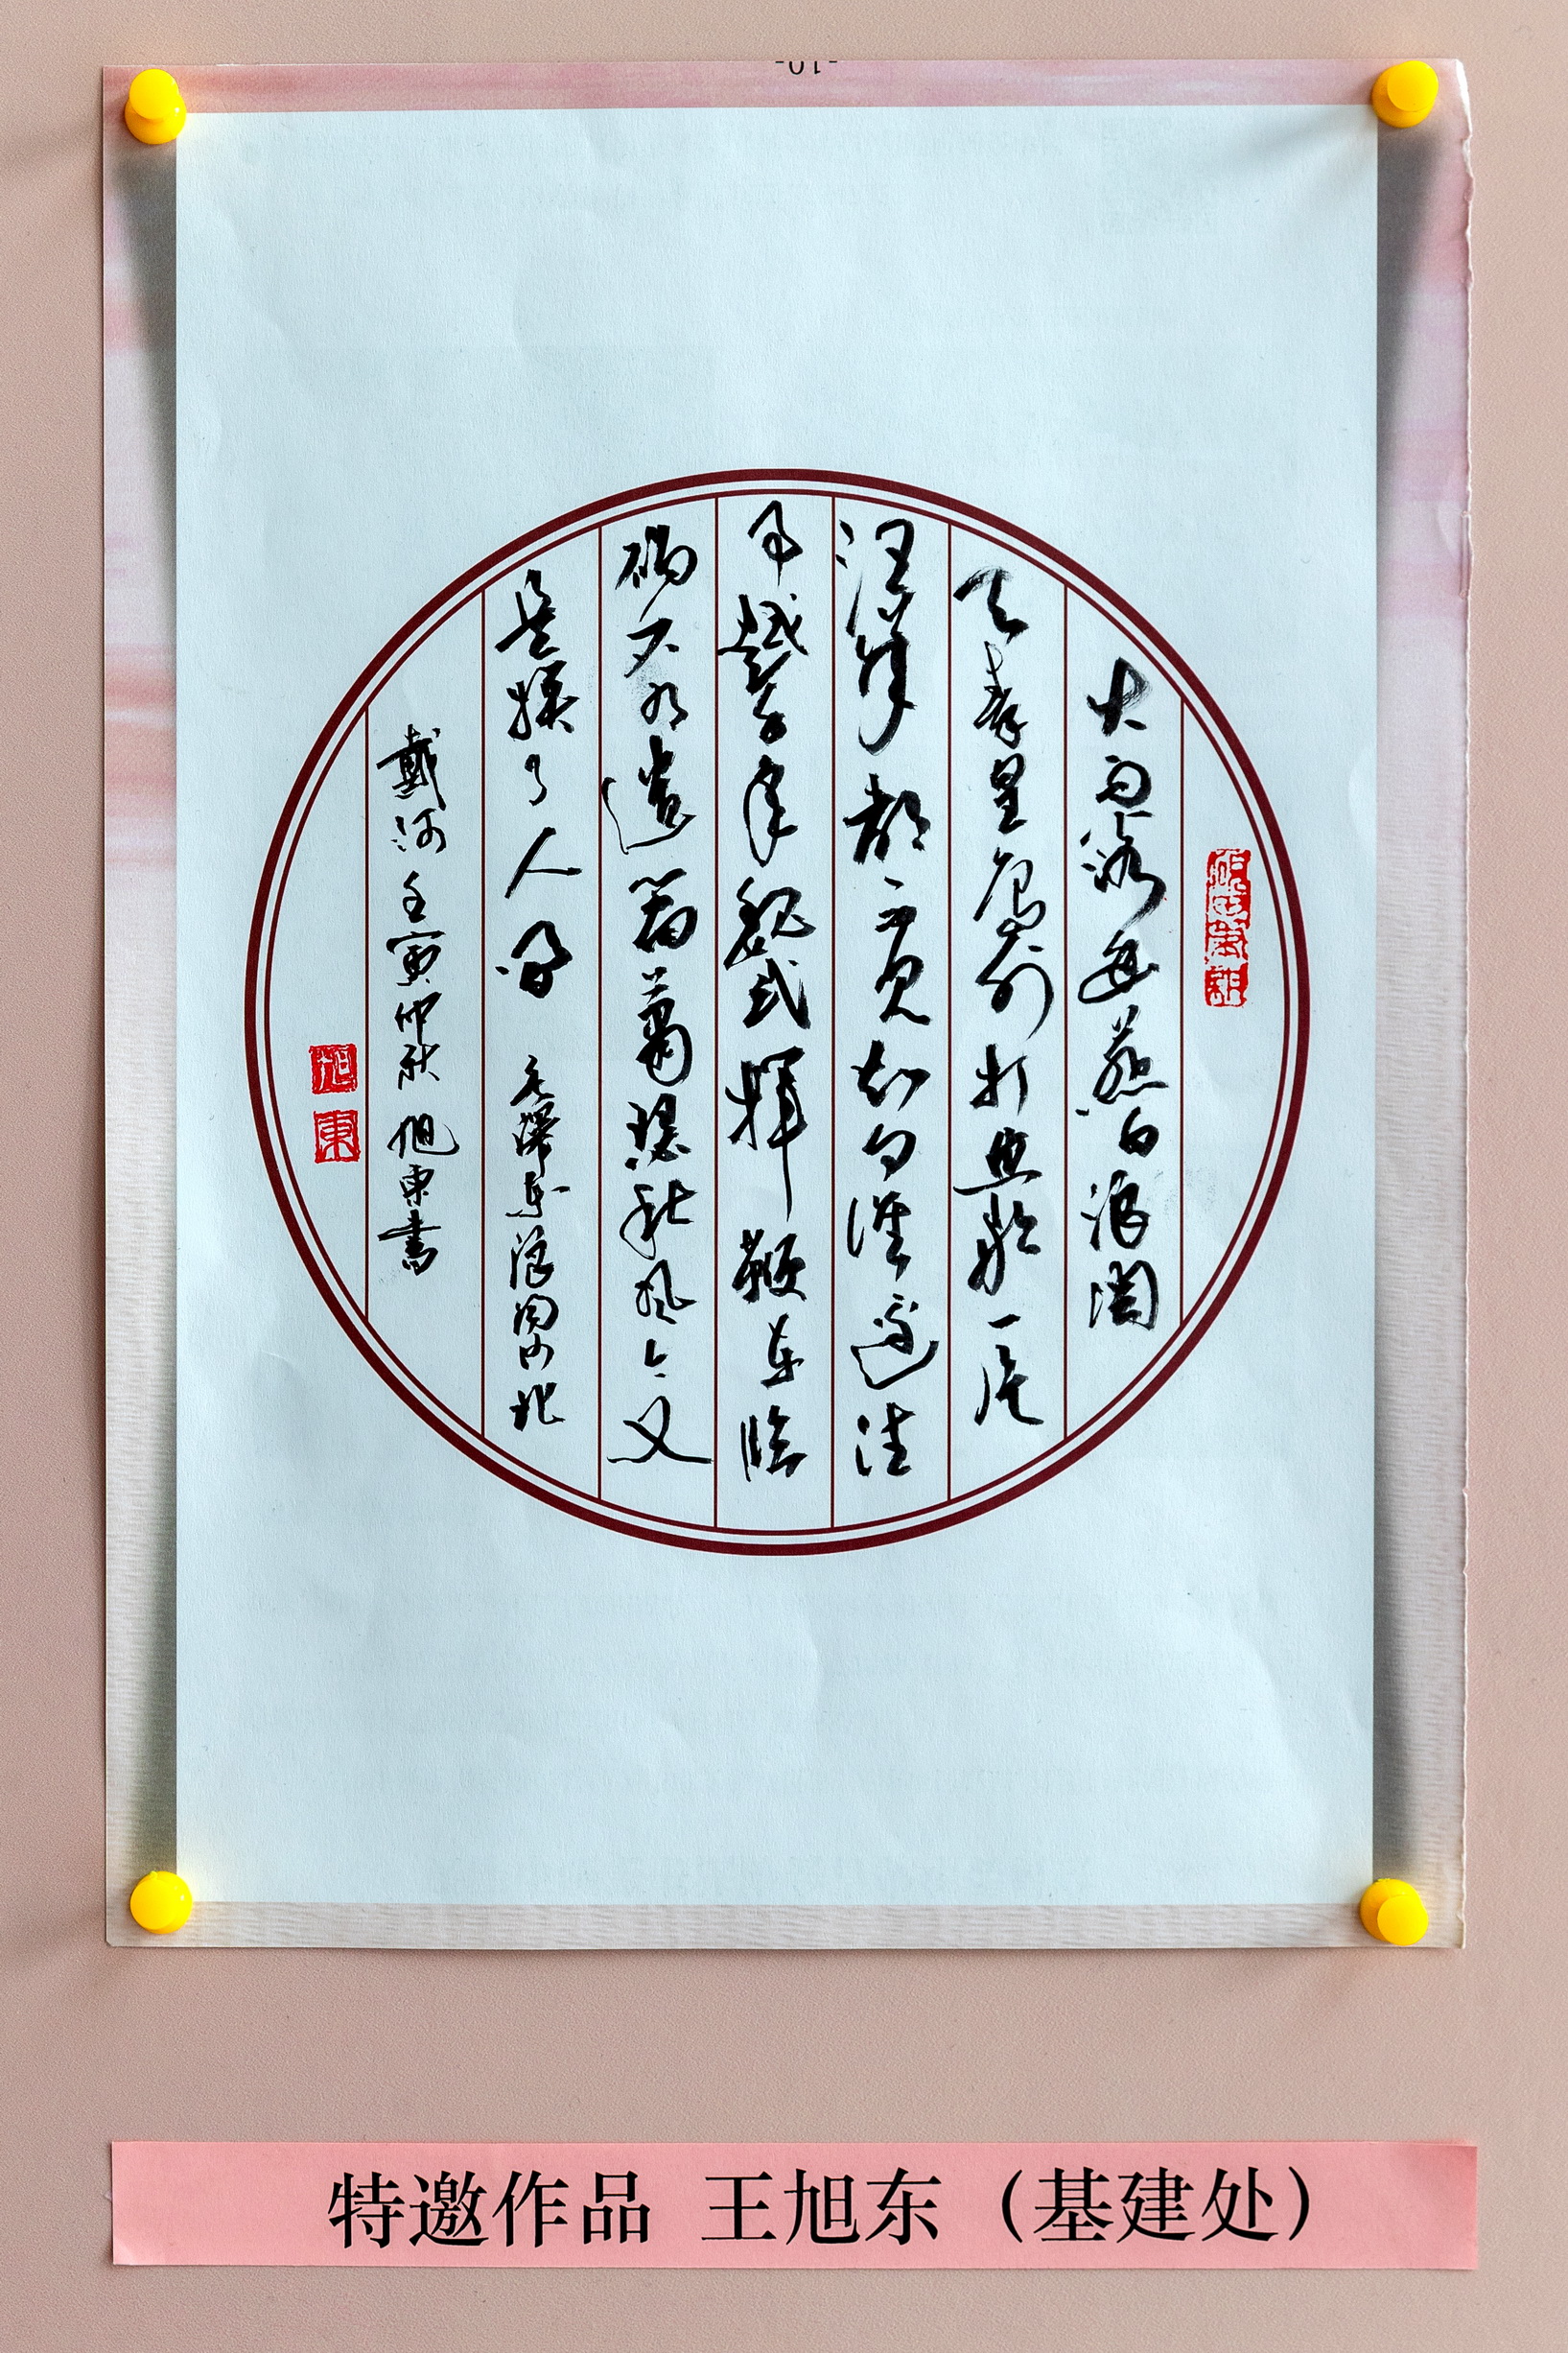 -10-
大雨落幽燕白浪淘
天秦皇島外打魚船一片
汪洋都不見知向誰邊往
事越千年魏武揮鞭东临
碣石有遺篇蕭瑟秋風今又
是換了人間 毛澤东浪淘沙北
戴河 壬寅仲秋 旭東書
旭
東
特邀作品 王旭东（基建处）